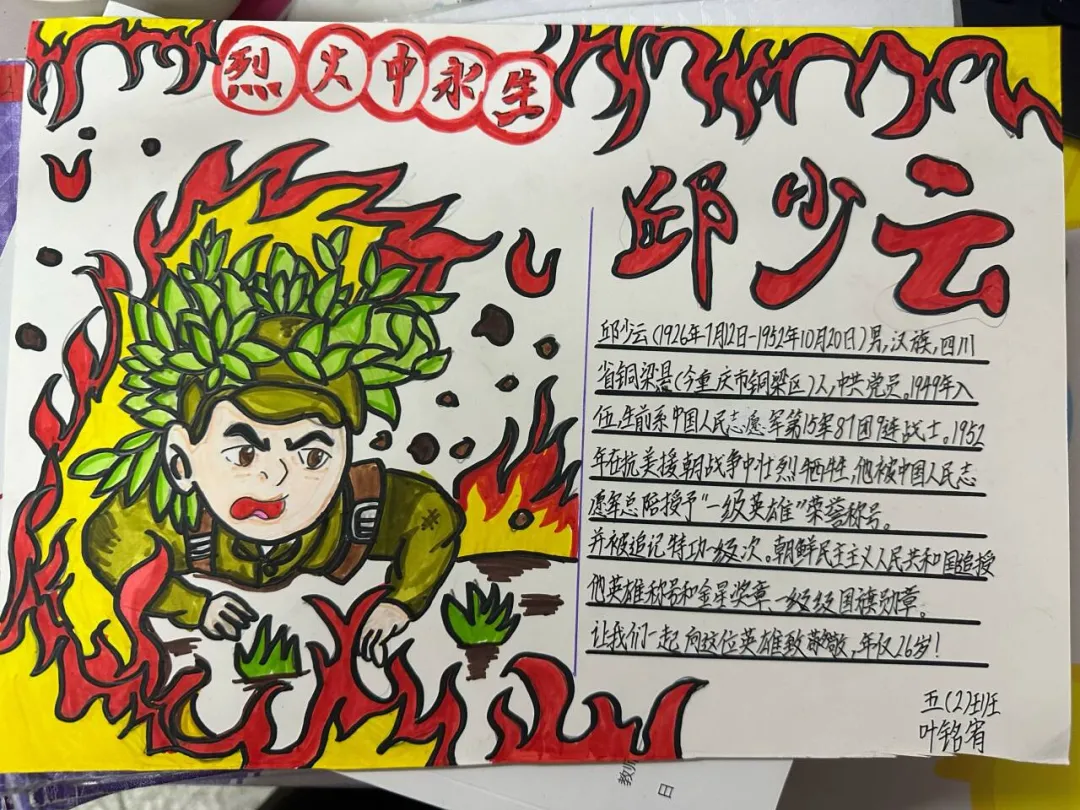 烈火中永生
邱少云
邱少云(1926年7月12日-1952年10月20日)男,汉族,四川
省铜梁县(今重庆市铜梁区)人,中共党员。1949年入
伍,生前系中国人民志愿军第15军87团9连战士。1952
年在抗美援朝战争中壮烈牺牲,他被中国人民志
愿军总陪授予“一级英雄”荣誉称号。
并被追记特功一级次。朝鲜民主主义人民共和国追授
他英雄称号和金星奖章、一级级国旗勋章。
让我们一起向这位英雄致敬,年仅26岁!
五(2)班
叶铭宥
日